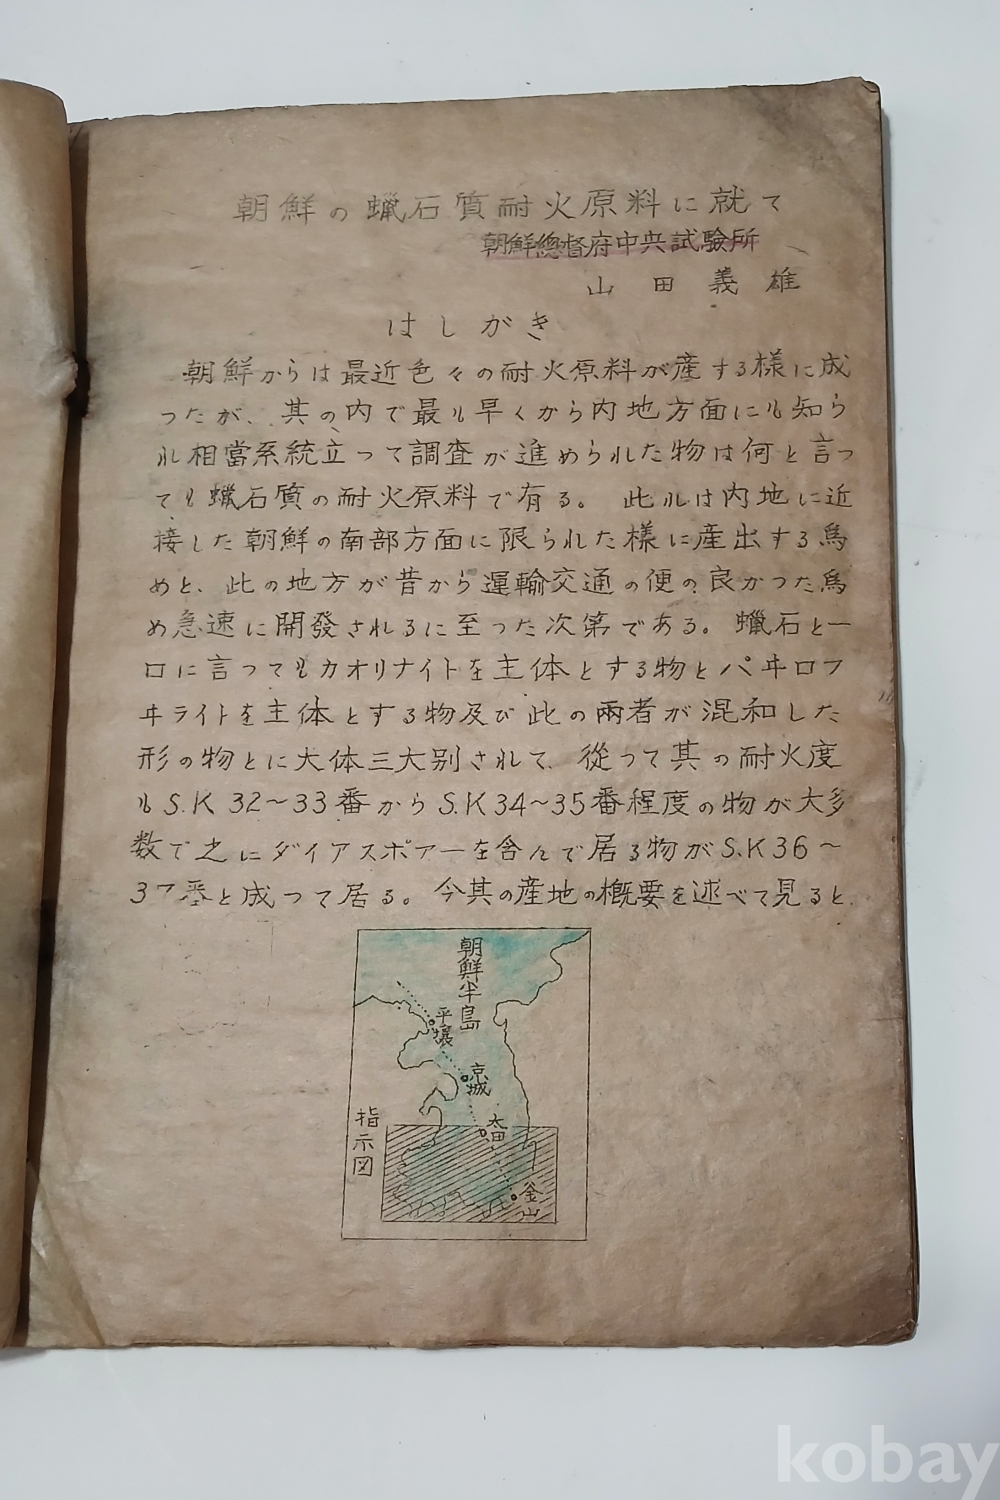 朝鮮の蝋石質耐火原料に就て
朝鮮總督府中央試驗所
山田義雄
はしがき
朝鮮からは最近色々の耐火原料が産する様に成
つたが、其の内で最も早くから内地方面にも知ら
れ相當系統立つて調査が進められた物は何と言つ
ても蝋石質の耐火原料で有る。此れは内地に近
接した朝鮮の南部方面に限られた様に産出する為
めと、此の地方が昔から運輸交通の便の良かつた為
め急速に開發されるに至つた次第である。蝋石と一
口に言つてもカオリナイトを主体とする物とパヰロフ
ヰライトを主体とする物及び此の兩者が混和した
形の物とに大体三大別されて、從つて其の耐火度
もS.K 32〜33番からS.K34〜35番程度の物が大多
数で之にダイアスポアーを含んで居る物がS.K36〜
37番と成つて居る。今其の産地の概要を述べて見ると、
朝鮮半島
平壤
京城
太田
釜山
指示図
kobay